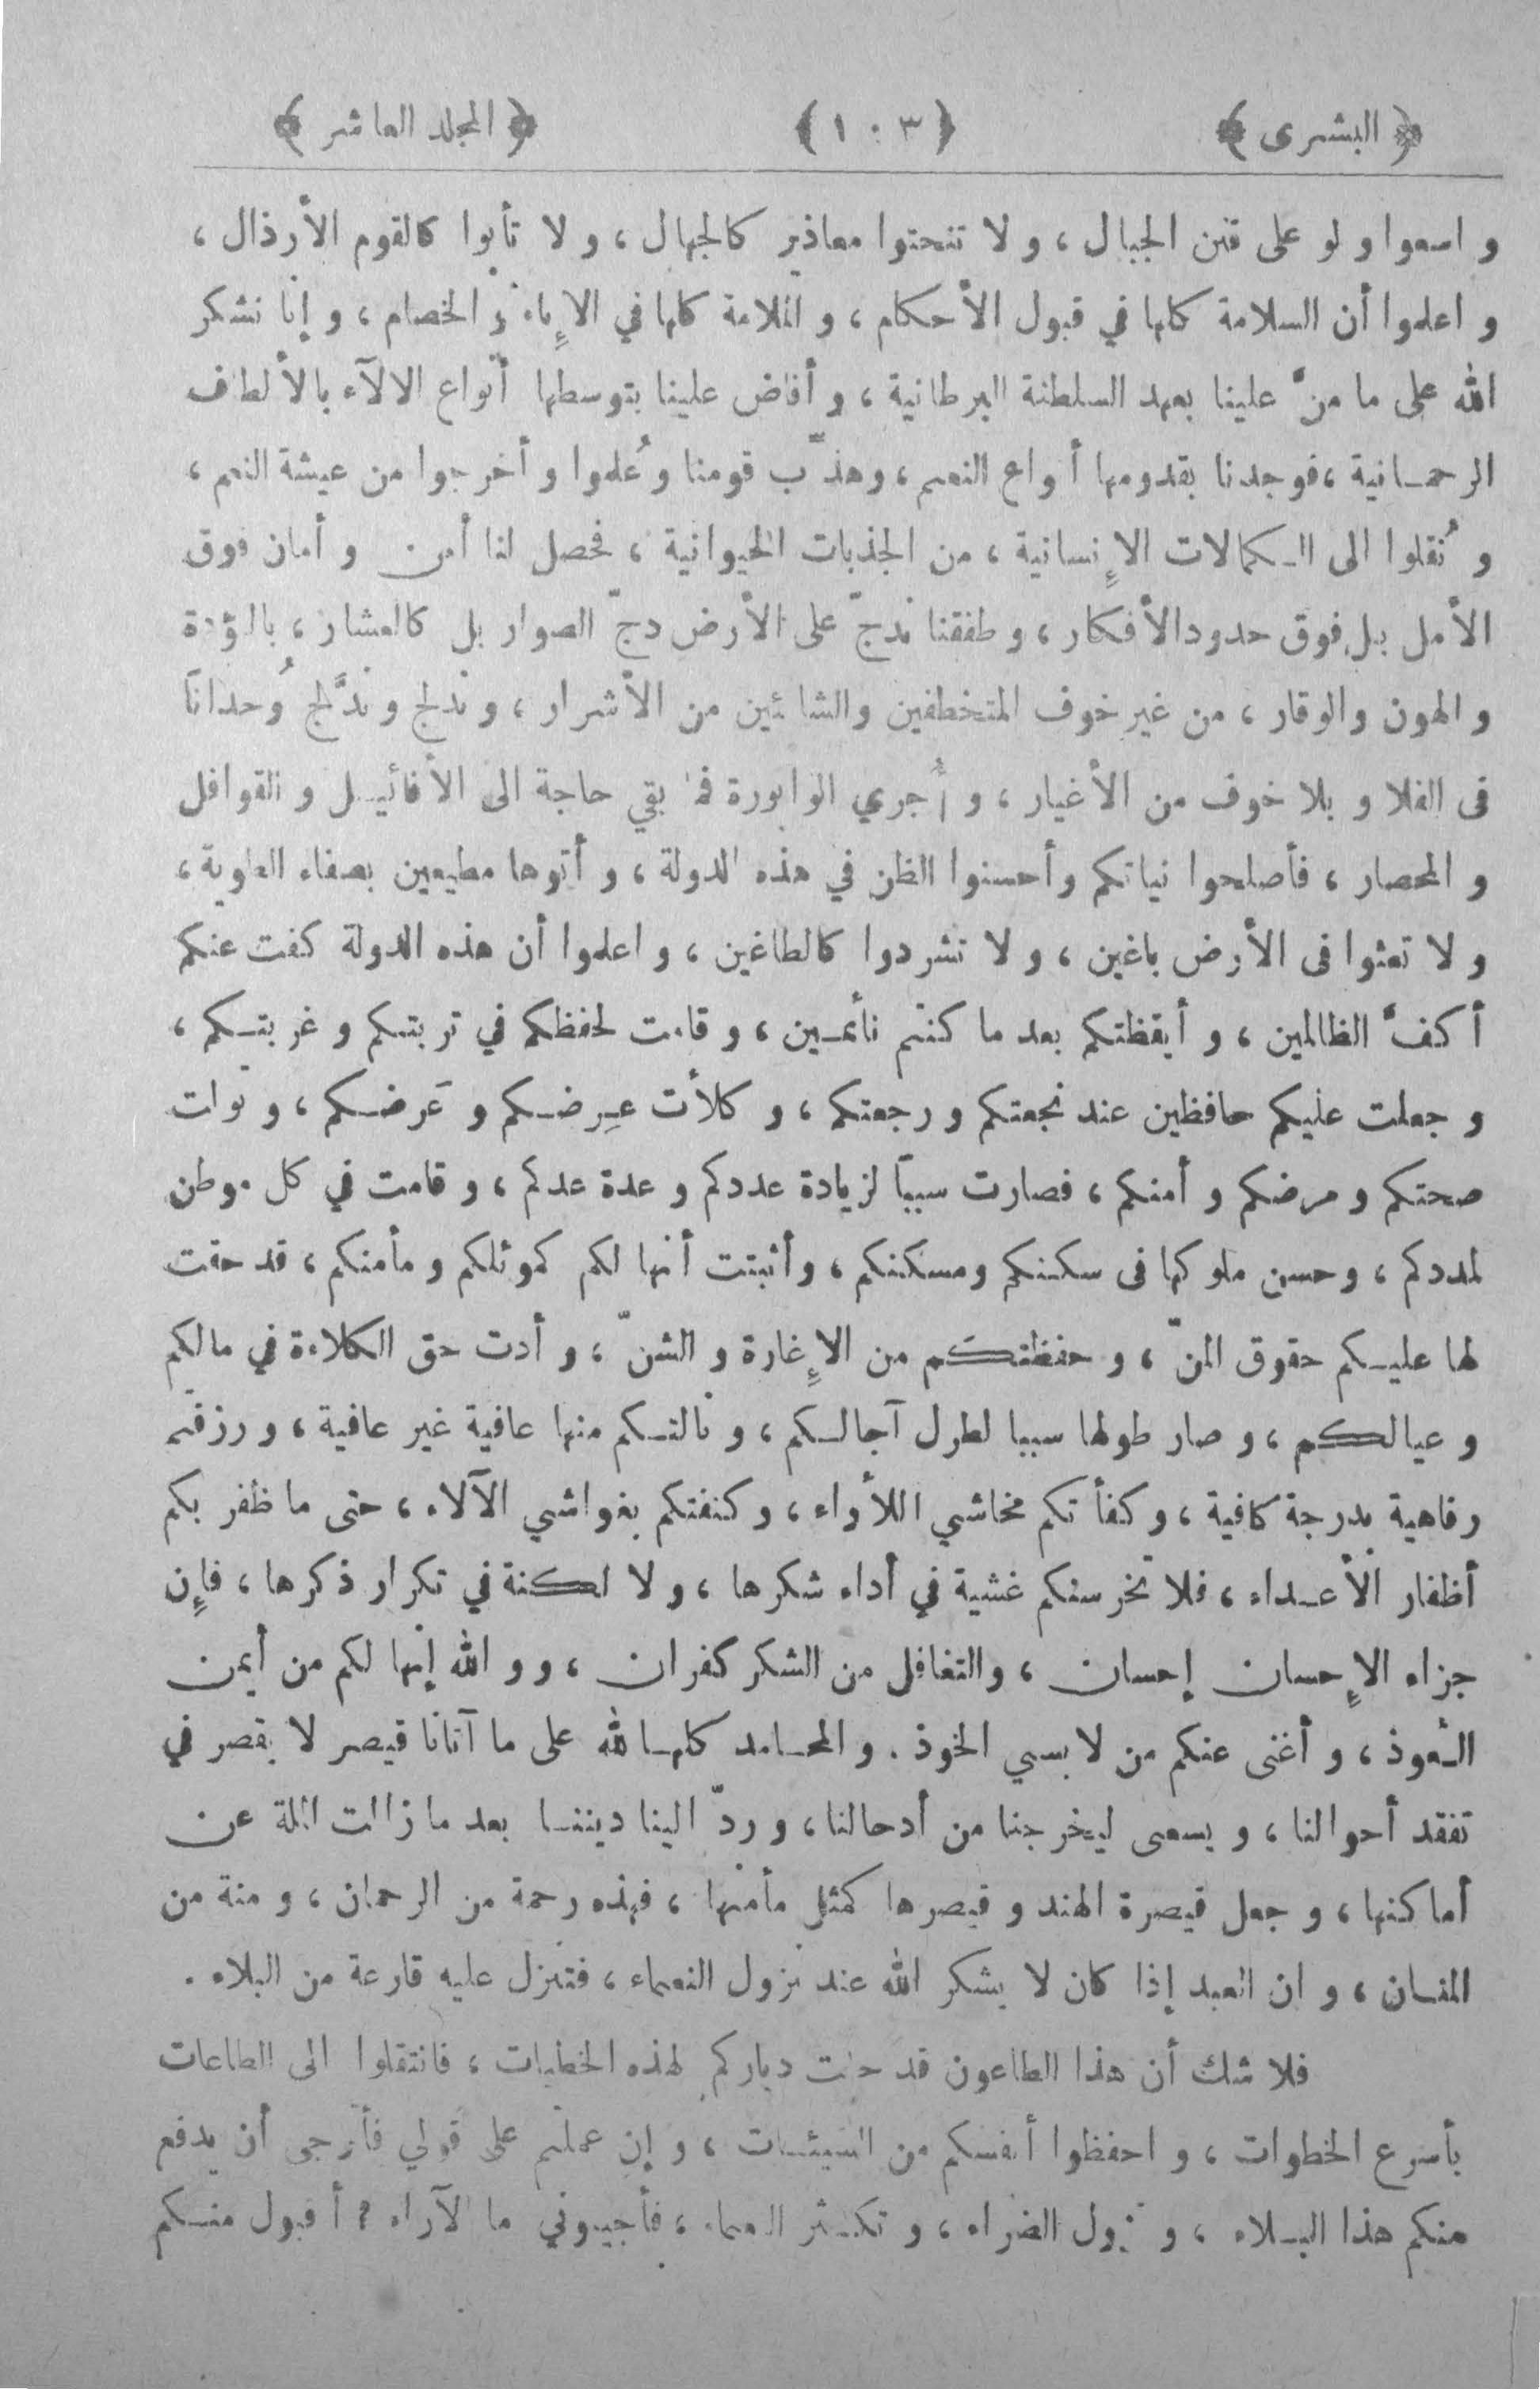 ﴿ البشرى ﴾ ﴿ ١٠٣ ﴾ ﴿ المجلد العاشر ﴾
و اسعوا و لو على قنن الجبال ، و لا تنحتوا معاذير كالجهال ، و لا تأبوا كالقوم الأرذال ،
و اعلموا أن السلامة كلها في قبول الأحكام ، و الملامة كلها في الإباء و الخصام ، و إنا نشكر
الله على ما منّ علينا بعهد السلطنة البرطانية ، و أفاض علينا بتوسطها أنواع الالآء بالألطاف
الرحمانية ، فوجدنا بقدومها أنواع النعم ، وهذّب قومنا وعُلموا و أخرجوا من عيشة النعم ،
و نُقلوا الى الكمالات الإنسانية ، من الجذبات الحيوانية ، فحصل لنا أمن و أمان فوق
الأمل بل فوق حدود الأفكار ، و طفقنا ندجّ على الأرض دجّ الصوار بل كالعشار ، بالؤدة
و الهون والوقار ، من غير خوف المتخطفين والشائين من الأشرار ، و ندلج و ندَّلج وُحداناً
فى الفلا و بلا خوف من الأغيار ، و أُجري الوابورة فما بقي حاجة الى الأفائيل و القوافل
و المحصار ، فأصلحوا نياتكم وأحسنوا الظن في هذه الدولة ، و أتوها مطيعين بصفاء الطوية ،
و لا تعثوا فى الأرض باغين ، و لا تشردوا كالطاغين ، و اعلموا أن هذه الدولة كفت عنكم
أكفّ الظالمين ، و أيقظتكم بعد ما كنتم نأئمين ، و قامت لحفظكم في تربتكم و غربتكم ،
و جعلت عليكم حافظين عند نجعتكم و رجعتكم ، و كلأت عِرضكم و عَرضكم ، و توات
صحتكم و مرضكم و أمنكم ، فصارت سبباً لزيادة عددكم و عدة عدكم ، و قامت في كل موطن
لمددكم ، و حسن ملوكها فى سكنكم ومسكنكم ، و أثبتت أنها لكم كموئلكم و مأمنكم ، قد حقت
لها عليكم حقوق المنّ ، و حفظتكم من الإغارة و الشنّ ، و أدت حق الكلاءة في مالكم
و عيالكم ، و صار طولها سببا لطول آجالكم ، و نالتكم منها عافية غير عافية ، و رزقتم
رفاهية بدرجة كافية ، و كفأتكم مخاشي اللأواء ، و كنفتكم بغواشي الآلاء ، حتى ما ظفر بكم
أظفار الأعداء ، فلا تخرسنكم غشية في أداء شكرها ، و لا لكنة في تكرار ذكرها ، فإن
جزاء الإحسان إحسان ، والتغافل من الشكر كفران ، و و الله إنها لكم من أيمن
العوذ ، و أغنى عنكم من لابسي الخوذ . و المحامد كلها لله على ما آتانا قيصر لا يقصر في
تفقد أحوالنا ، و يسعى ليخرجنا من أدحالنا ، و ردّ الينا ديننا بعد ما زالت الملة عن
أماكنها ، و جعل قيصرة الهند و قيصرها كمثل مأمنها ، فهذه رحمة من الرحمان ، و منة من
المنان ، و ان العبد إذا كان لا يشكر الله عند نزول النعماء ، فتنزل عليه قارعة من البلاء .
فلا شك أن هذا الطاعون قد حلت دياركم لهذه الخطيات ، فانتقلوا الى الطاعات
بأسرع الخطوات ، و احفظوا أنفسكم من السيئات ، و إن عملتم على قولي فأرجى أن يدفع
منكم هذا البلاء ، و نزول الضراء ، و تكثر النعماء ، فأجيبوني ما الآراء ؟ أقبول منكم